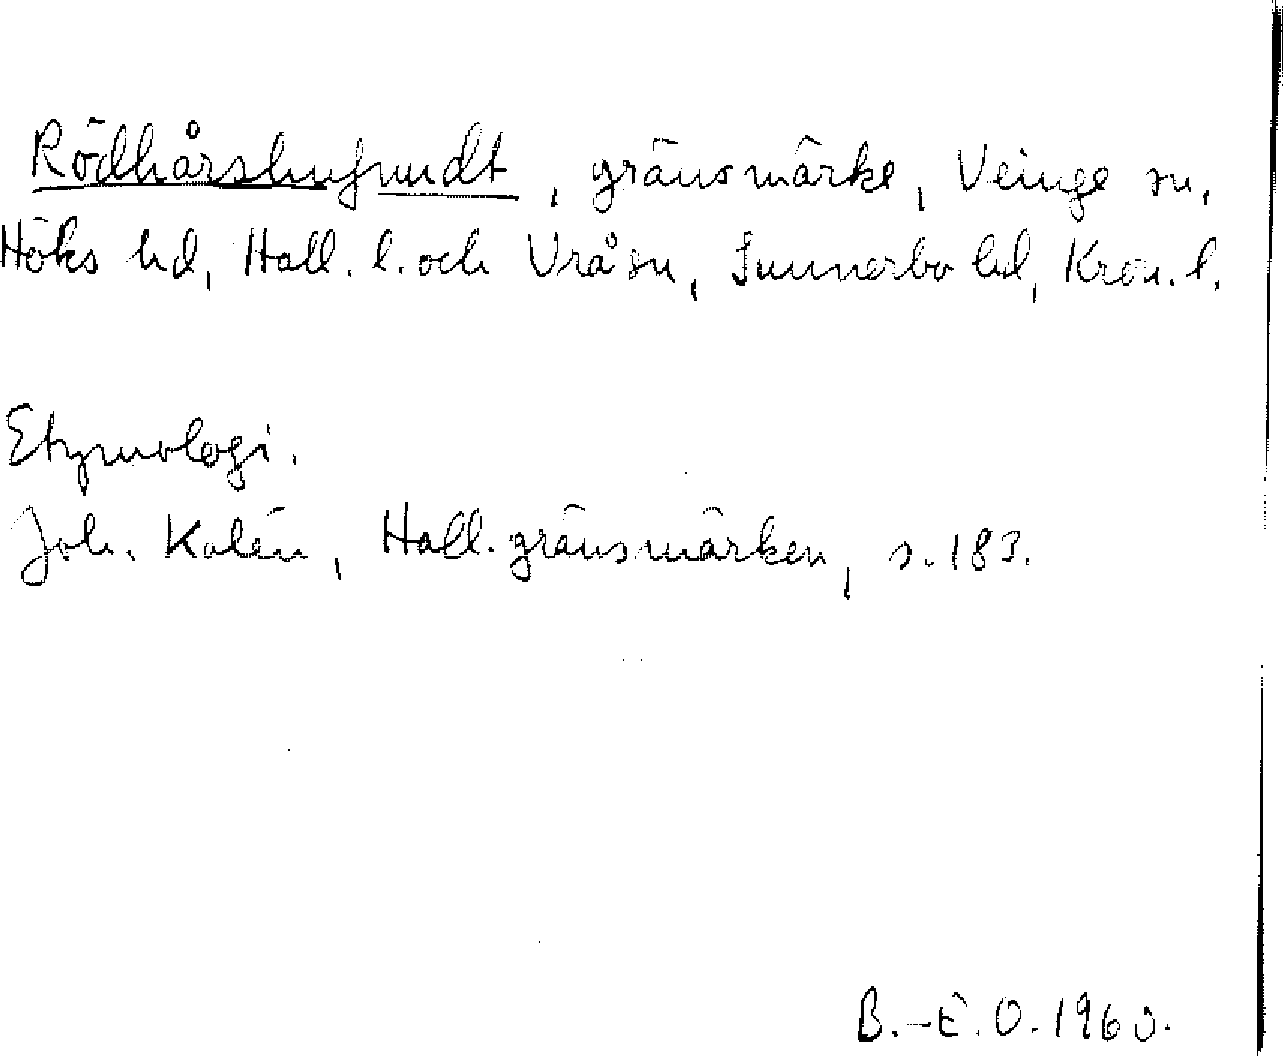 Rödhårshufundt, gränsmärke, Veinge sn,
Höks hd, Hall. l. och Vrå sn, Sunnerbo hd, Kron. l.
Etymologi.
Joh. Kalén, Hall. gränsmärken, s. 183.
B.-E. O. 1960.